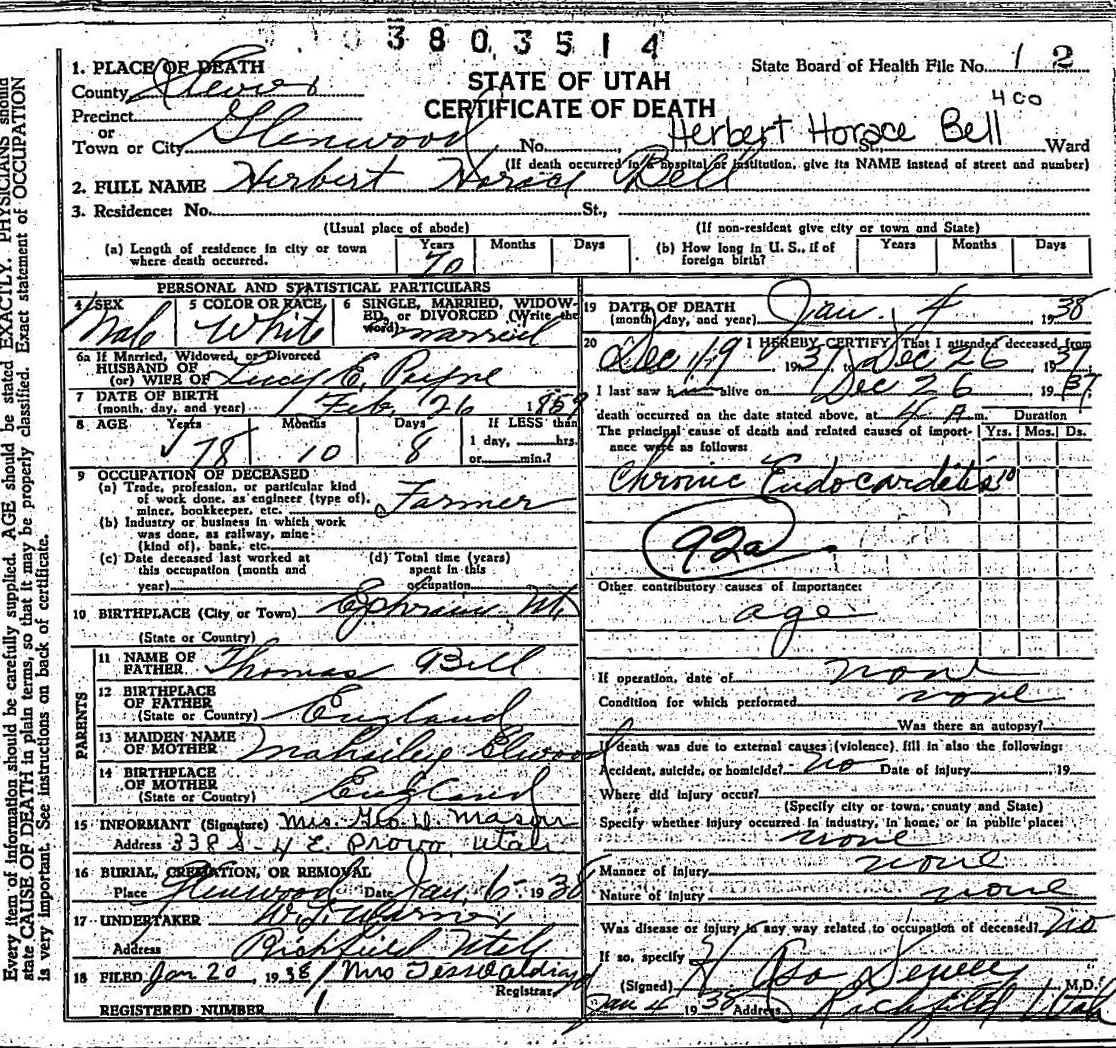 3803514
State Board of Health File No. 1 2
STATE OF UTAH
CERTIFICATE OF DEATH
400
1. PLACE OF DEATH
County Sevier
Precinct
or
Town or City Glenwood No. St., Ward
Herbert Horace Bell
(If death occurred in a hospital or institution, give its NAME instead of street and number)
2. FULL NAME Herbert Horace Bell
3. Residence: No. St.,
(Usual place of abode) (If non-resident give city or town and State)
(a) Length of residence in city or town where death occurred. Years 70 Months Days
(b) How long in U. S., if of foreign birth? Years Months Days
PERSONAL AND STATISTICAL PARTICULARS
4 SEX Male
5 COLOR OR RACE White
6 SINGLE, MARRIED, WIDOWED, or DIVORCED (Write the word) married
6a If Married, Widowed, or Divorced
HUSBAND OF
(or) WIFE OF Lucy E. Payne
7 DATE OF BIRTH
(month, day, and year) Feb. 26 1859
8 AGE Years 78 Months 10 Days 8 If LESS than
1 day, hrs.
or min.?
9 OCCUPATION OF DECEASED
(a) Trade, profession, or particular kind
of work done, as engineer (type of),
miner, bookkeeper, etc. Farmer
(b) Industry or business in which work
was done, as railway, mine
(kind of), bank, etc.
(c) Date deceased last worked at
this occupation (month and
year)
(d) Total time (years)
spent in this
occupation
10 BIRTHPLACE (City or Town) Ephraim Ut.
(State or Country)
PARENTS
11 NAME OF
FATHER Thomas Bell
12 BIRTHPLACE
OF FATHER
(State or Country) England
13 MAIDEN NAME
OF MOTHER Elwood
14 BIRTHPLACE
OF MOTHER
(State or Country) England
15 INFORMANT (Signature) Mrs. Geo. D. Mason
Address 338 S - 4 E. Provo, Utah
16 BURIAL, CREMATION, OR REMOVAL
Place Glenwood Date Jan. 6 1938
17 UNDERTAKER Warner
Address Richfield Utah
18 FILED Jan 20, 1938 Mrs
Registrar
REGISTERED NUMBER 1
19 DATE OF DEATH
(month, day, and year) Jan. 4 1938
20 I HEREBY CERTIFY, That I attended deceased from
Dec 19 1937, to Dec 26 1937
I last saw h alive on Dec 26 1937
death occurred on the date stated above, at 4 A m.
Duration
The principal cause of death and related causes of importance were as follows: Yrs. Mos. Ds.
Chronic Endocarditis 10
92a
Other contributory causes of importance:
age
If operation, date of none
Condition for which performed none
Was there an autopsy?
If death was due to external causes (violence) fill in also the following:
Accident, suicide, or homicide? no Date of injury 19
Where did injury occur?
(Specify city or town, county and State)
Specify whether injury occurred in industry, in home, or in public place:
none
Manner of injury none
Nature of injury none
Was disease or injury in any way related to occupation of deceased? No
If so, specify
(Signed) H Asa Dewey M.D.
Jan 4 1938 Address Richfield Utah
Every item of information should be carefully supplied. AGE should be stated EXACTLY. PHYSICIANS should
state CAUSE OF DEATH in plain terms, so that it may be properly classified. Exact statement of OCCUPATION
is very important. See instructions on back of certificate.